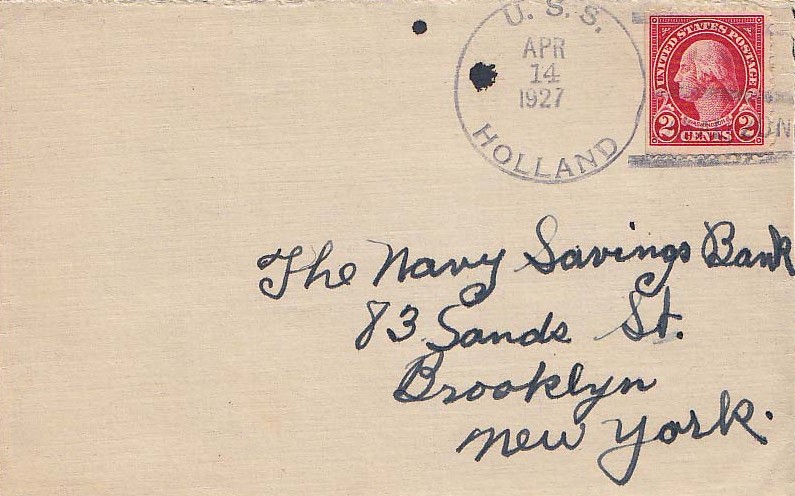 U. S. S.
APR
14
1927
HOLLAND
UNITED STATES POSTAGE
2 CENTS 2
The Navy Savings Bank
83 Sands St.
Brooklyn
New York.